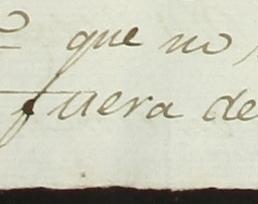 que no
fuera de